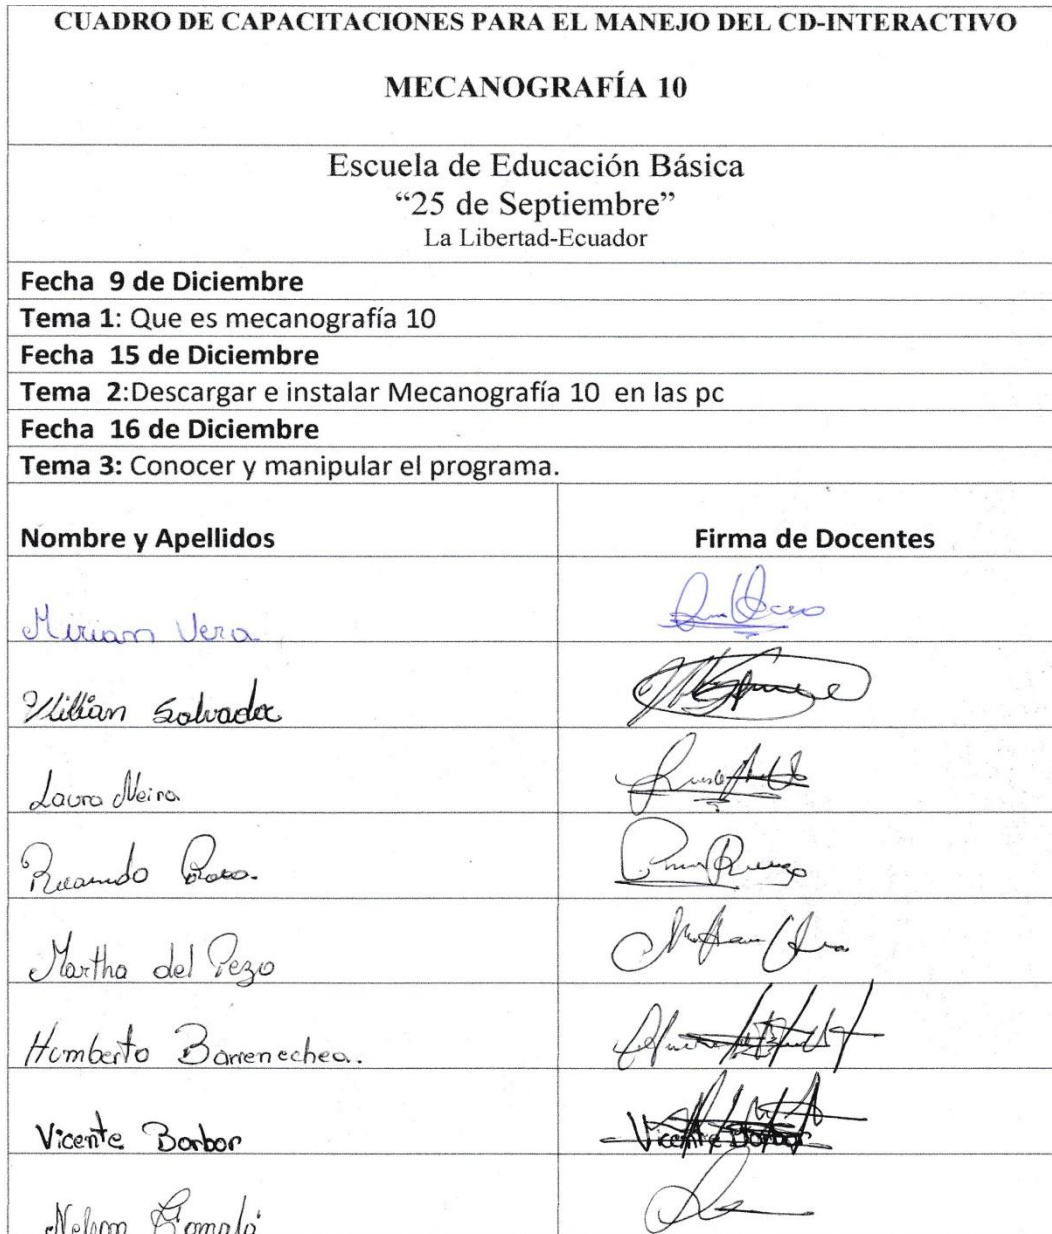 CUADRO DE CAPACITACIONES PARA EL MANEJO DEL CD-INTERACTIVO
MECANOGRAFÍA 10
Escuela de Educación Básica
“25 de Septiembre”
La Libertad-Ecuador
Fecha 9 de Diciembre
Tema 1: Que es mecanografía 10
Fecha 15 de Diciembre
Tema 2:Descargar e instalar Mecanografía 10 en las pc
Fecha 16 de Diciembre
Tema 3: Conocer y manipular el programa.
Nombre y Apellidos Firma de Docentes
Miriam Vera
Willian Salvador
Laura Neira
Ricardo
Martha del Pezo
Humberto Barrenechea.
Vicente Borbor Vicente Borbor
Nelson